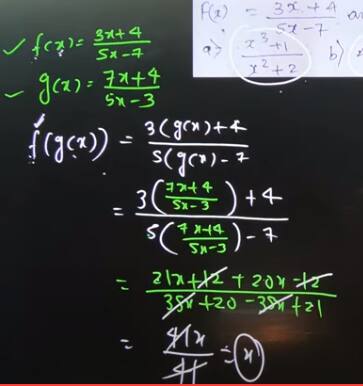 f(x) = 3x+4 / 5x-7 an
a) x³+1 / x²+2 b)
✓ f(x) = 3x+4 / 5x-7
✓ g(x) = 7x+4 / 5x-3
f(g(x)) = 3(g(x)+4 / 5(g(x)-7
= 3(7x+4 / 5x-3)+4 / 5(7x+4 / 5x-3)-7
= 21x+12+20x-12 / 35x+20-35x+21
= 41x / 41 = x